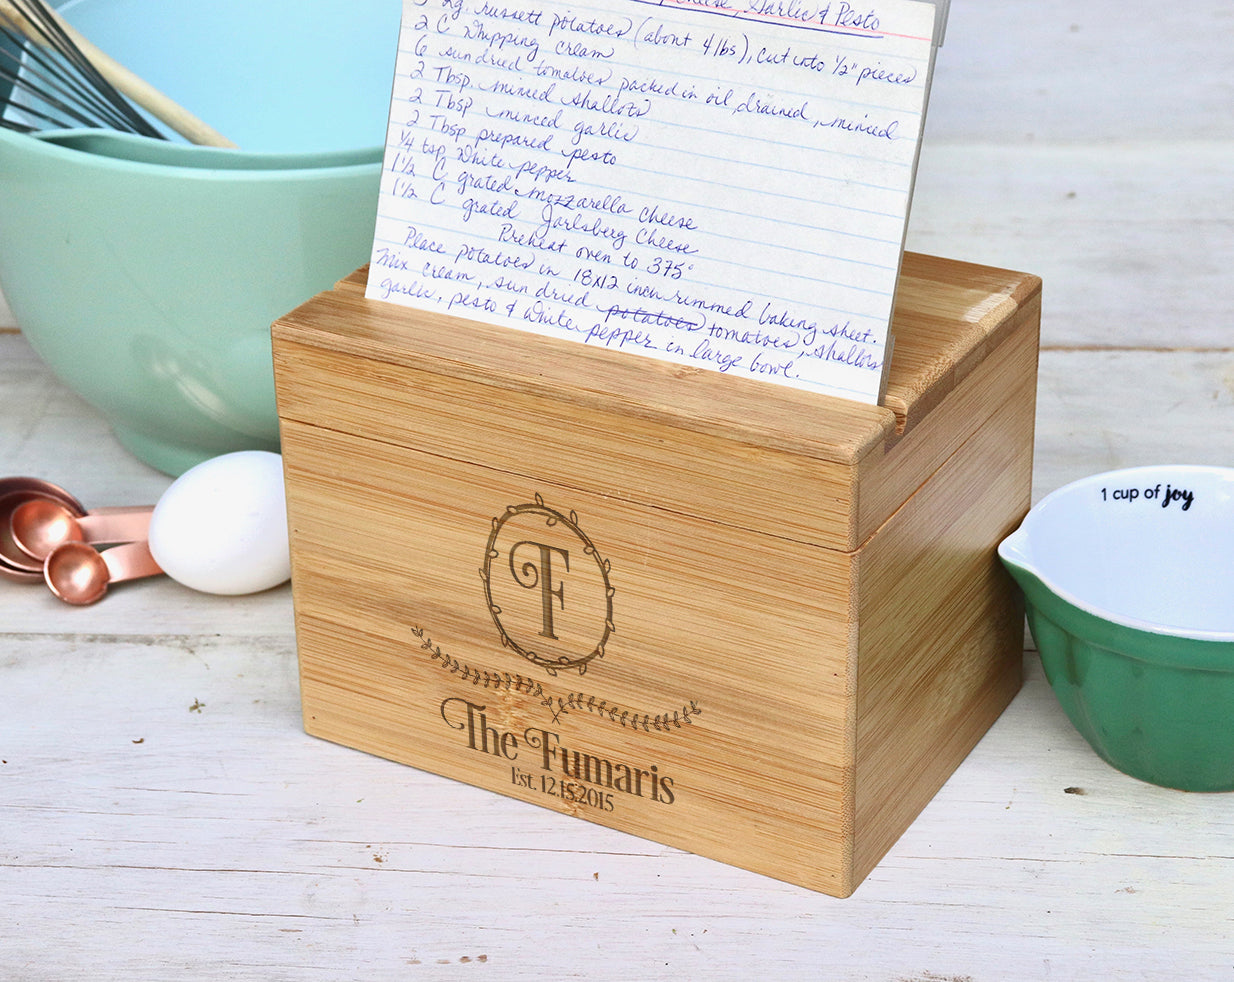 Cheese, Garlic & Pesto
lg. russett potatoes (about 4 lbs), cut into 1/2" pieces
2 C Whipping cream
6 sun dried tomatoes packed in oil, drained, minced
2 Tbsp. minced shallots
2 Tbsp minced garlic
2 Tbsp prepared pesto
1/4 tsp White pepper
1 1/2 C grated mozzarella cheese
1 1/2 C grated Jarlsberg Cheese
Preheat oven to 375°
Place potatoes in 18x12 inch rimmed baking sheet.
Mix cream, sun dried potatoes tomatoes, shallots
garlic, pesto & White pepper in large bowl.
1 cup of joy
F
The Fumaris
Est. 12.15.2015